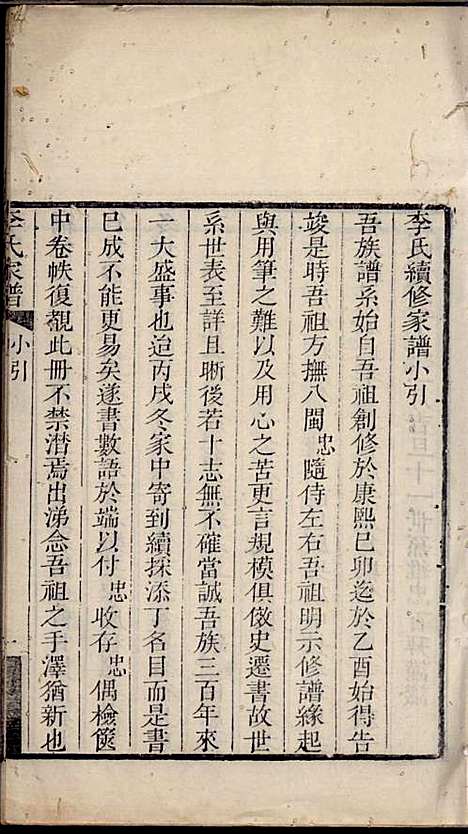 李氏續修家譜小引
吾族譜系始自吾祖創修於康熙己卯迄於乙酉始得告
竣是時吾祖方撫八閩忠隨侍左右吾祖明示修譜緣起
與用筆之難以及用心之苦更言規模俱倣史遷書故世
系世表至詳且晰後若十志無不確當誠吾族三百年來
一大盛事也迨丙戌冬家中寄到續採添丁名目而是書
已成不能更易矣遂書數語於端以付忠收存忠偶檢篋
中卷帙復覩此冊不禁潸焉出涕念吾祖之手澤猶新也
李氏家譜 小引 一